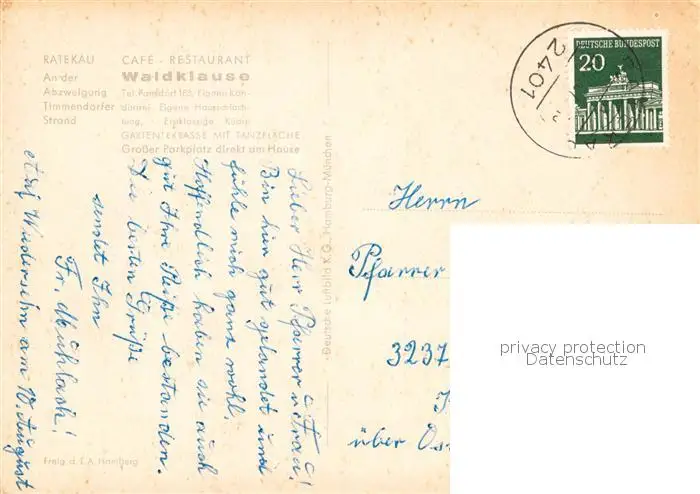 RATEKAU
An der
Abzweigung
Timmendorfer
Strand
CAFÉ - RESTAURANT
Waldklause
Tel. Pansdorf 185, Eigene Kon-
ditorei, Eigene Hausschlach-
tung, Erstklassige Küche
GARTENTERRASSE MIT TANZFLÄCHE
Großer Parkplatz direkt am Hause
Lieber Herr Pfarrer u. Frau!
Bin hier gut gelandet und
fühle mich ganz wohl.
Hoffendlich haben sie auch
gut Ihre Reiße bestanden.
Die besten Grüße
sendet Ihn
Fr.
auf Wiedersehn am 10. August
Freig. d. L.A. Hamburg
Deutsche Luftbild K.G. Hamburg-München
DEUTSCHE BUNDESPOST
20
2401
Herrn
Pfarrer
3237
über
privacy protection
Datenschutz